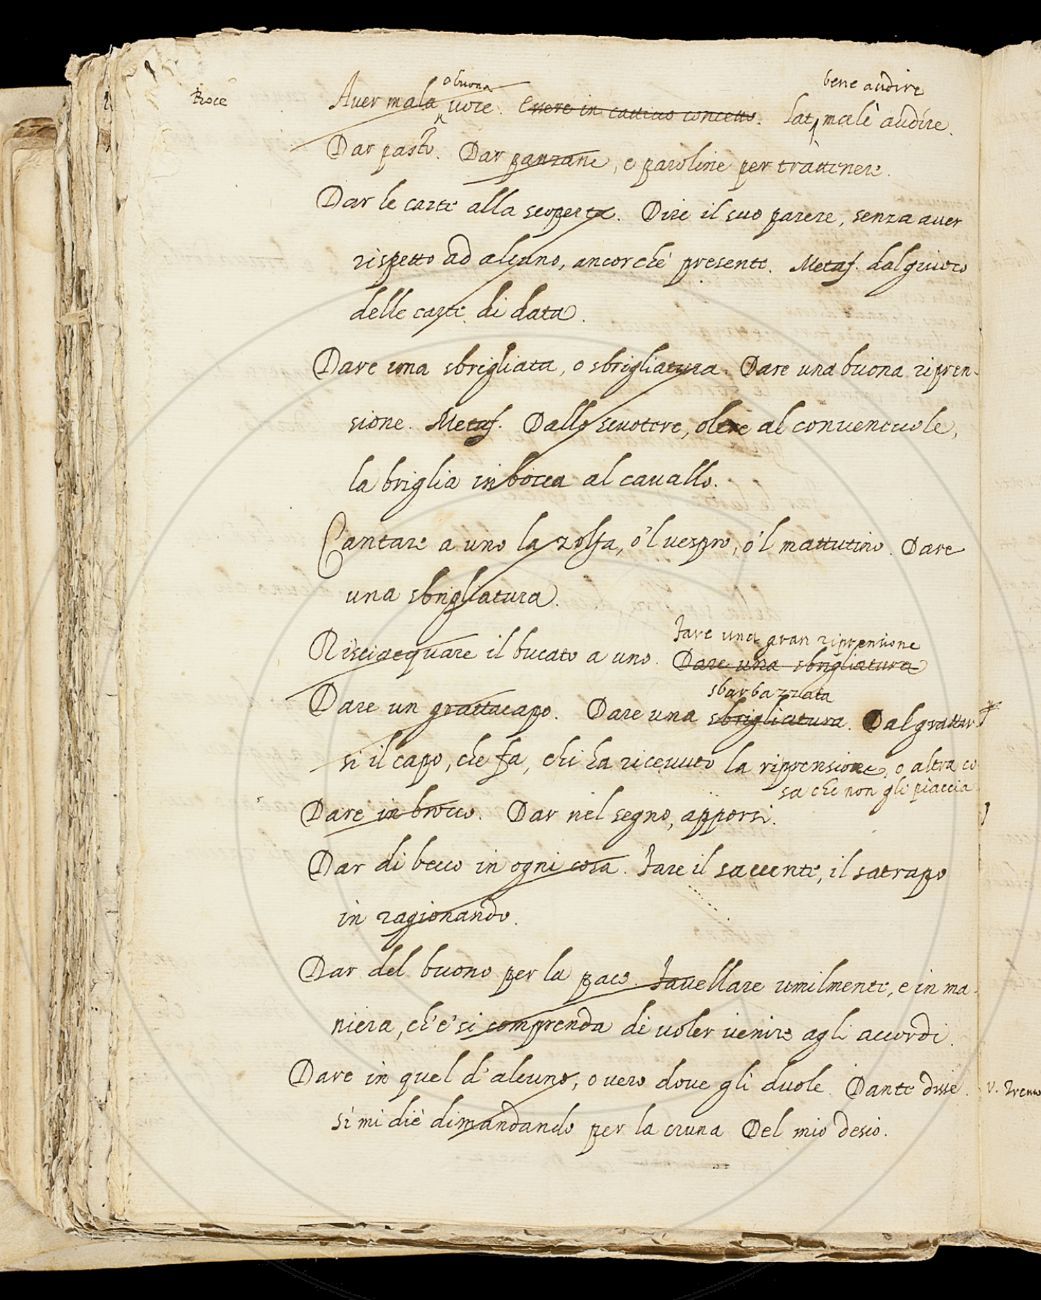 bene audire
o buona
Auer mala uoce. Essere in cattiuo concetto. Lat. malè audire.
Dar pasto. Dar panzane, e paroline per trattenere.
Dar le carte alla scoperta. Dire il suo parere, senza auer
rispetto ad alcuno, ancorche' presente. Metaf. dal giuoco
delle carte di data.
Dare una sbrigliata, o sbrigliatura. Dare una buona ripren-
sione. Metaf. Dallo scuotere, oltre al conueneuole,
la briglia in bocca al cauallo.
Cantare a uno la zolfa, o'l uespro, o'l mattutino. Dare
una sbrigliatura.
fare una gran riprensione
Risciacquare il bucato a uno. Dare una sbrigliatura
sbarbazzata
Dare un grattacapo. Dare una sbrigliatura. Dal grattar
si il capo, che fa, chi ha riceuuto la riprensione, o altra co
sa che non gli piaccia
Dare in brocco. Dar nel segno, apporsi.
Dar di becco in ogni cosa. Fare il saccente, il satrapo
in ragionando.
Dar del buono per la pace. Fauellare umilmente, e in ma-
niera, ch'e' si comprenda di uoler uenire agli accordi.
Dare in quel d'alcuno, o uero doue gli duole. Dante disse.
Si mi diè dimandando per la cruna Del mio desio.